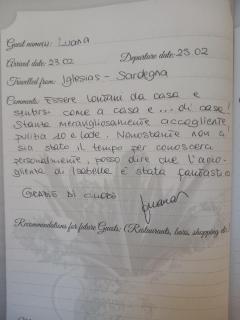 Guest name(s): Luana
Arrival date: 23.02 Departure date: 23.02
Travelled from: Iglesias - Sardegna
Comments: Essere lontani da casa e
sentirsi come a casa e ... di casa!
Stanza meravigliosamente accogliente
pulita 10 e lode. Nonostante non ci
sia stato il tempo per conoscersi
personalmente, posso dire che l'acco-
glienza di Isabelle è stata fantastica
GRAZIE DI CUORE
Luana
Recommendations for future Guests: (Restaurants, bars, shopping etc.